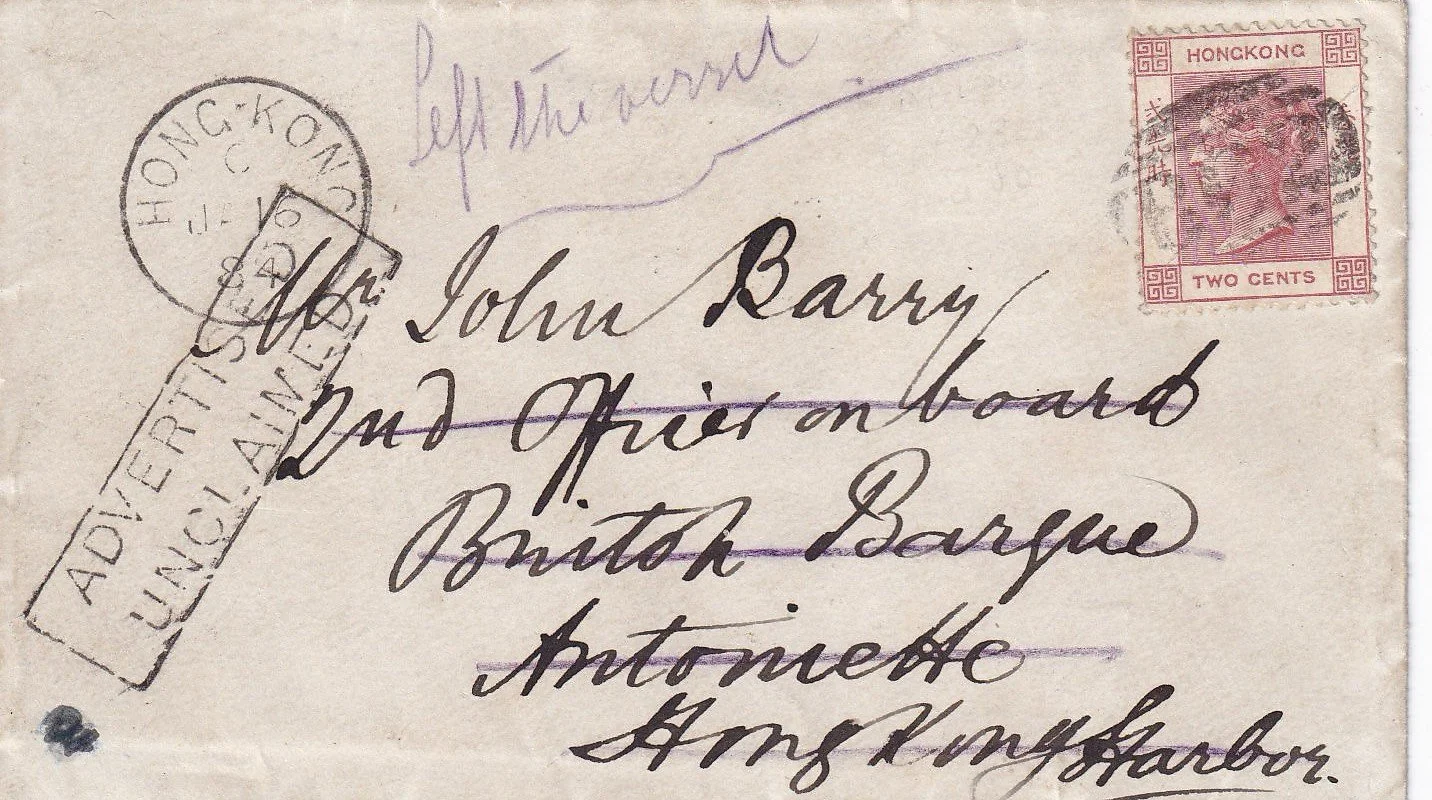 Left the vessel
HONGKONG
TWO CENTS
HONG-KONG
C
JA 16
84
ADVERTISED
UNCLAIMED
Mr John Barry
2nd Officer on board
British Barque
Antoniette
Hong Kong Harbor.